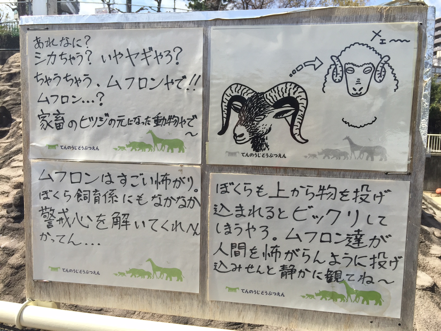 あれなに?
シカちゃう? いやヤギやろ?
ちゃうちゃう、ムフロンやで!!
ムフロン…?
家畜のヒツジの元になった動物やで〜
てんのうじどうぶつえん
メェ〜〜
てんのうじどうぶつえん
ムフロンはすごい怖がり。
ぼくら飼育係にもなかなか
警戒心を解いてくれへ
かってん…
てんのうじどうぶつえん
ぼくらも上から物を投げ
込まれるとビックリして
しまうやろ。ムフロン達が
人間を怖がらんように投げ
込みせんと静かに観てね〜
てんのうじどうぶつえん